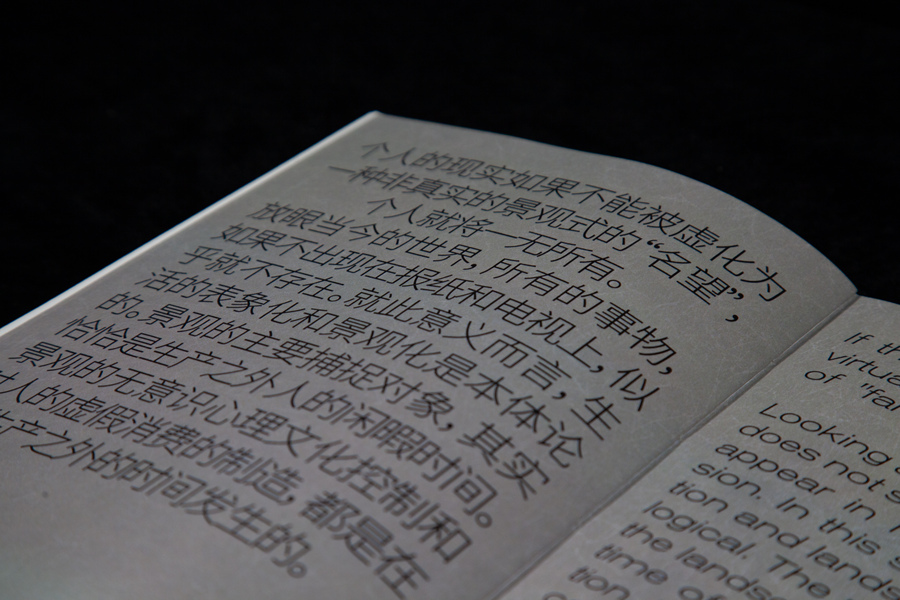 个人的现实如果不能被虚化为
一种非真实的景观式的“名望”，
个人就将一无所有。
放眼当今的世界，所有的事物，
如果不出现在报纸和电视上，似
乎就不存在。就此意义而言，生
活的表象化和景观化是本体论
的。景观的主要捕捉对象，其实
恰恰是生产之外人的闲暇时间。
景观的无意识心理文化控制和
对人的虚假消费的制造，都是在
生产之外的时间发生的。
If
virtua
of "fa
Looking
does not s
appear in
sion. In this
tion and lands
jogical. The
the lands
time of
tion